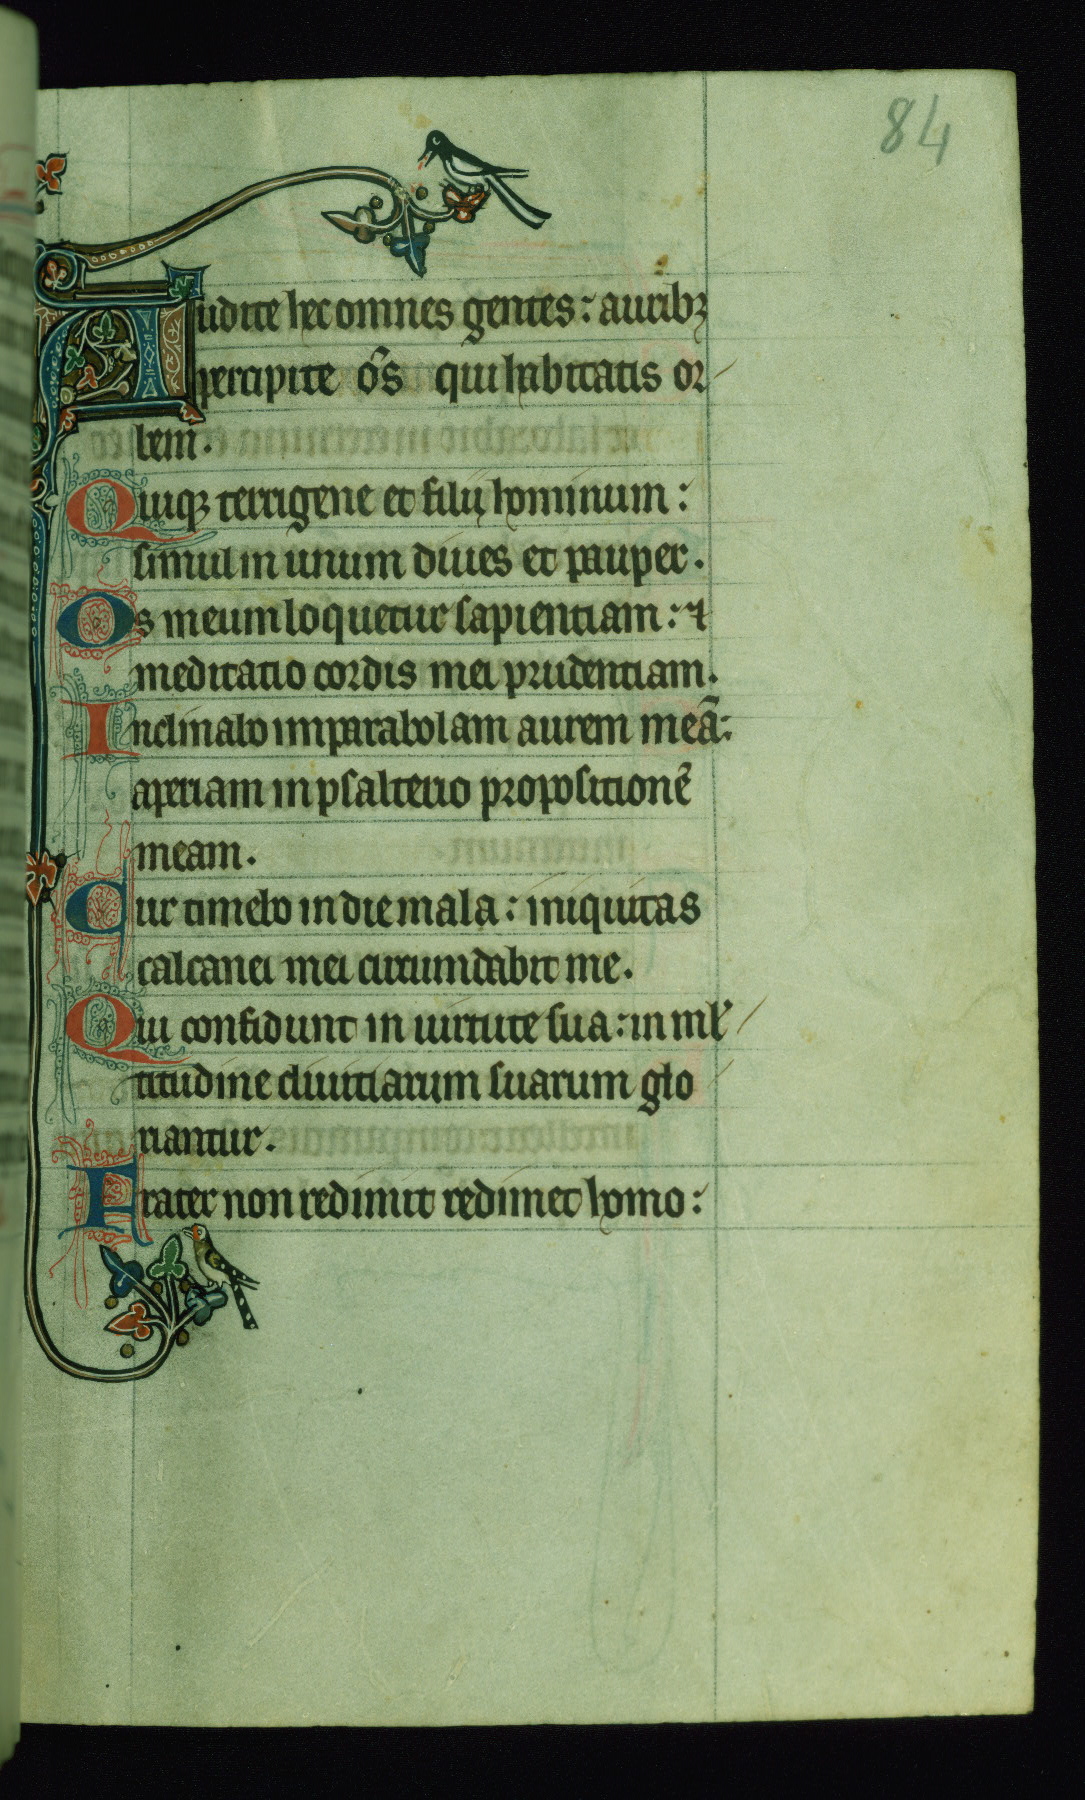 84
Audite hec omnes gentes: auribꝫ
percipite om̄s qui habitatis or
bem.
Quiqꝫ terrigene et filij hominum:
simul in unum diues et pauper.
Os meum loquetur sapientiam: ⁊
meditatio cordis mei prudentiam.
Inclinabo in parabolam aurem meā:
aperiam in psalterio propositionē
meam.
Cur timebo in die mala: iniquitas
calcanei mei circumdabit me.
Qui confidunt in uirtute sua: in ml̕
titudine diuitiarum suarum glo
riantur.
Frater non redimit redimet homo: